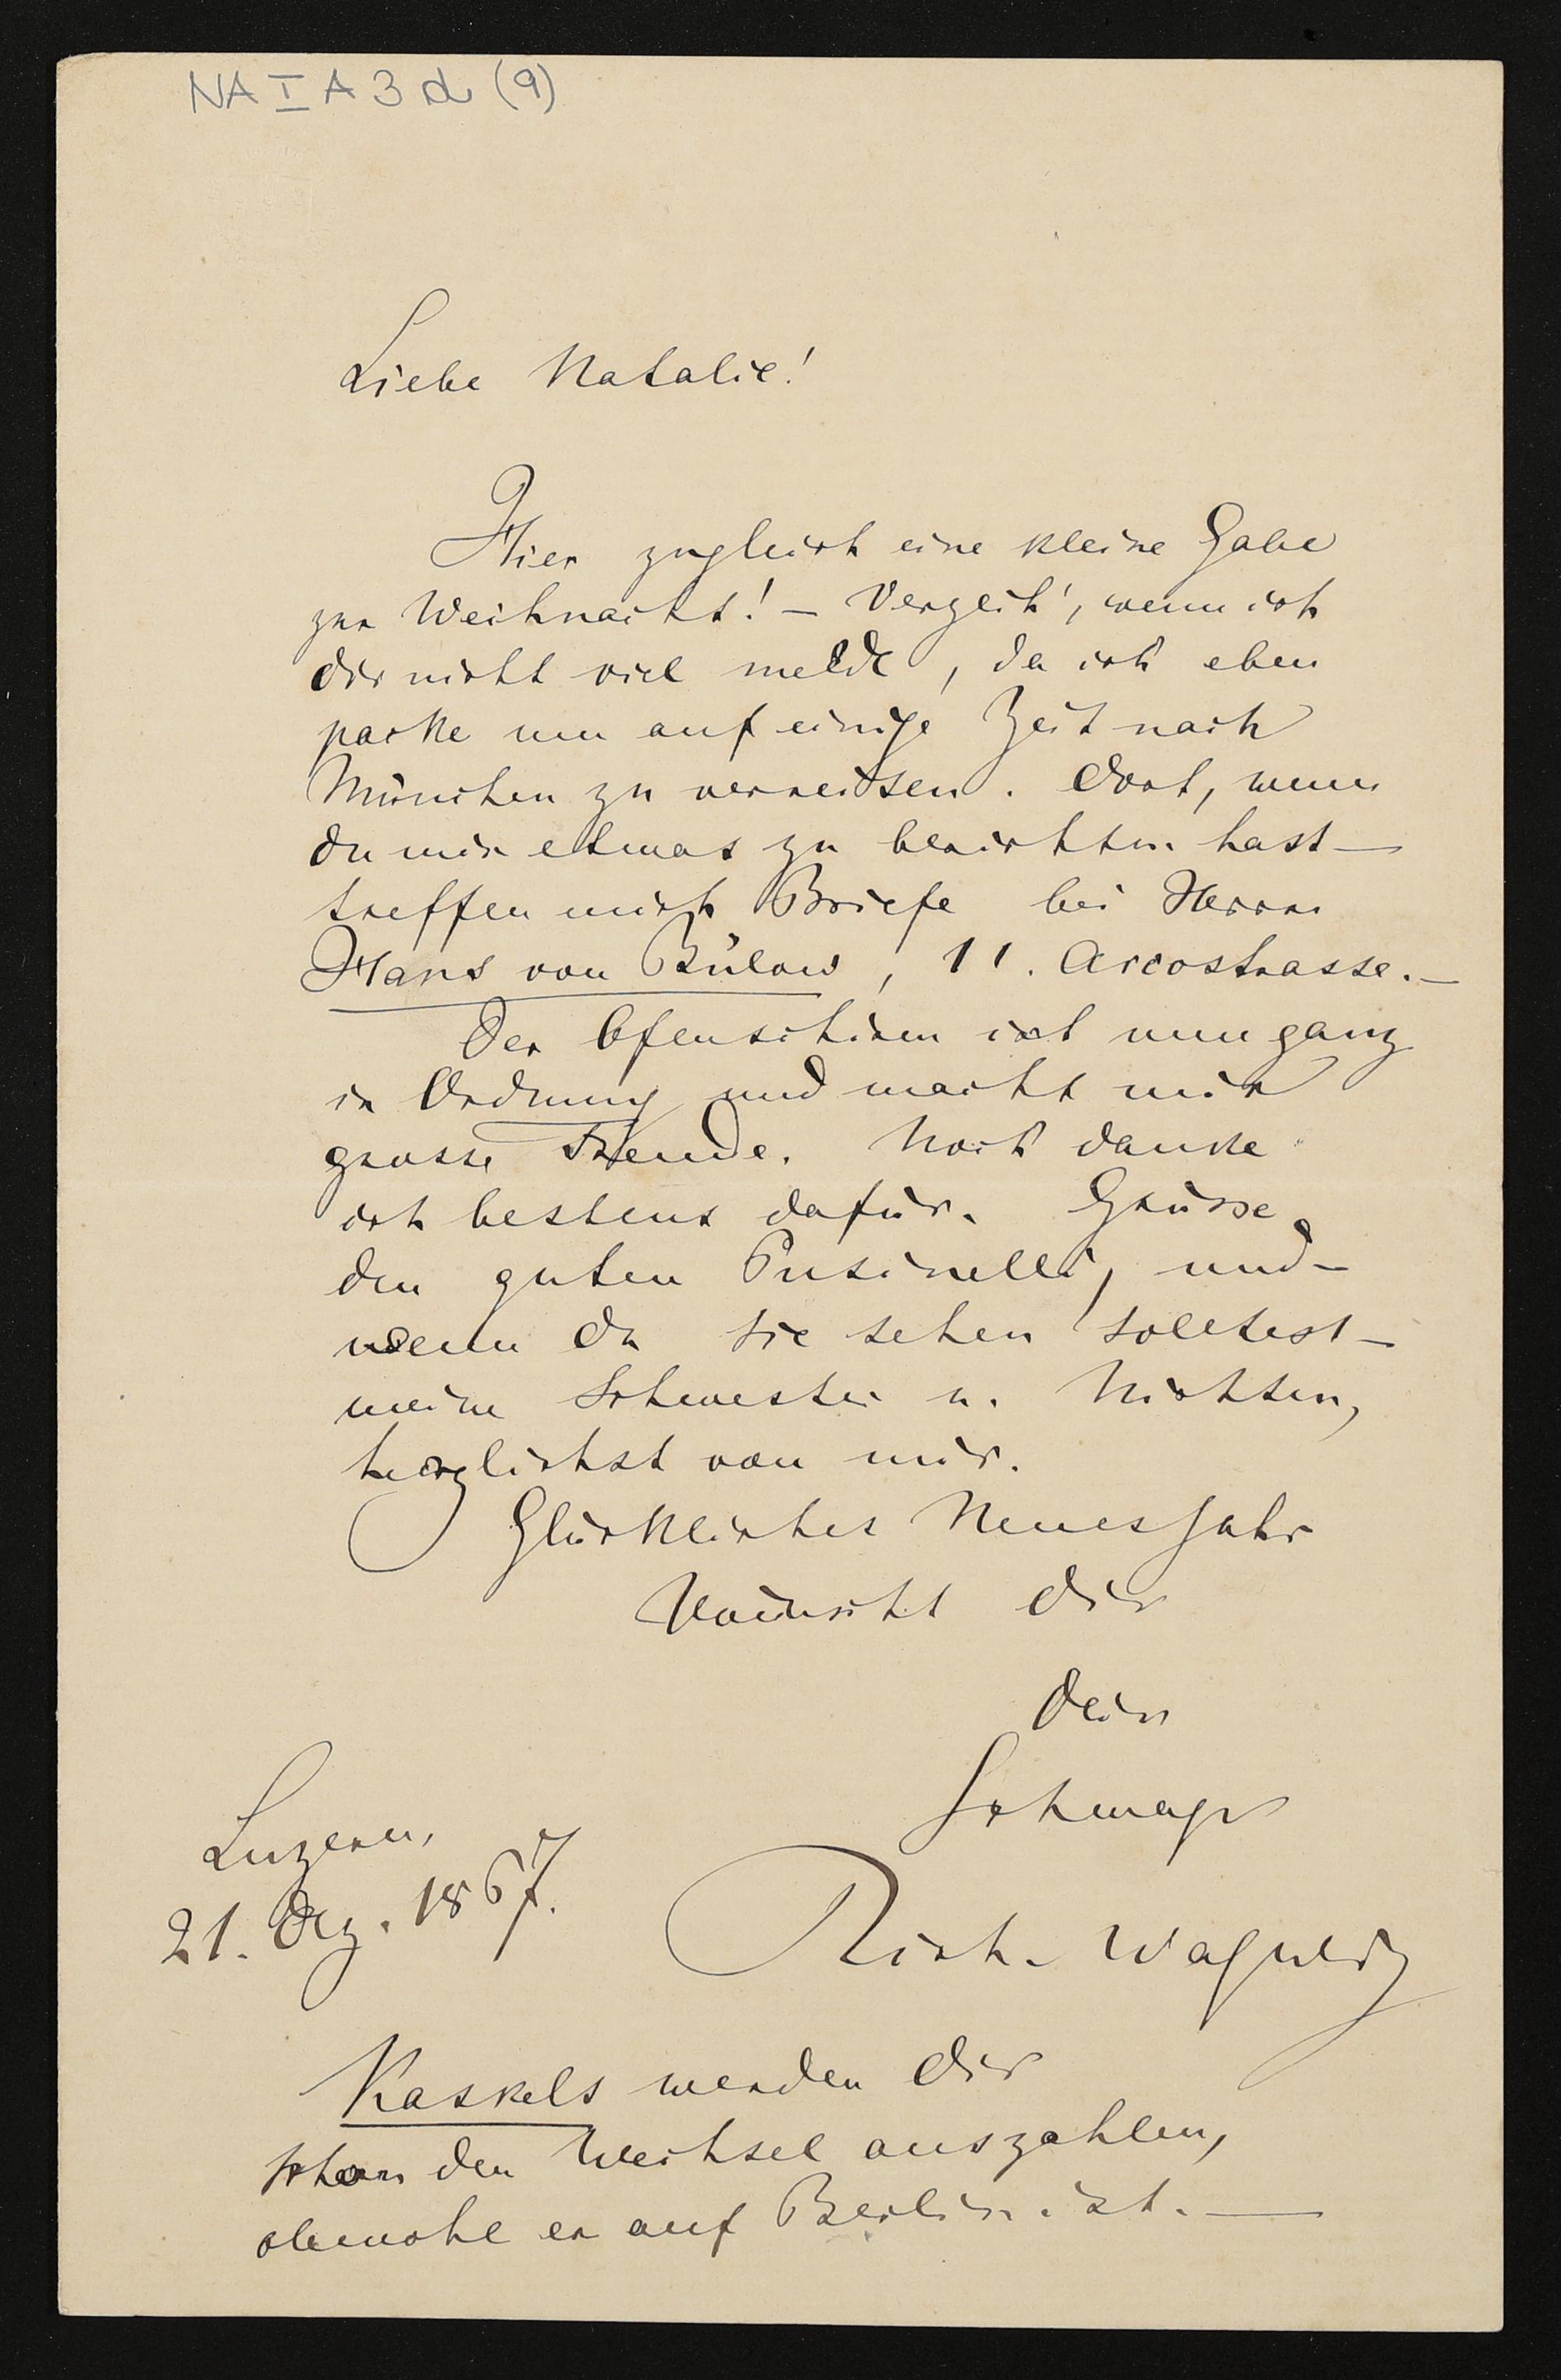 NA I A 3 d (9)
Liebe Natalie!
Hier zugleich eine kleine Gabe
zur Weihnacht! – Verzeih', wenn ich
dir nicht viel melde, da ich eben
packe um auf einige Zeit nach
München zu verreisen. Dort, wenn
du mir etwas zu berichten hast –
treffen mich Briefe bei Herrn
Hans von Bülow, 11. Arcostrasse. –
Der Ofenschirm ist nun ganz
in Ordnung und macht mir
grosse Freude. Noch danke
ich bestens dafür. Grüsse
den guten Pusinelli, und –
wenn du sie sehen solltest –
meine Schwester u. Nichten,
herzlichst von mir.
Glückliches Neues Jahr
wünscht dir
Dein
Schwager
Rich. Wagner
Luzern,
21. Dez. 1867.
Kaskels werden dir
schon den Wechsel auszahlen,
obwohl er auf Berlin ist. –